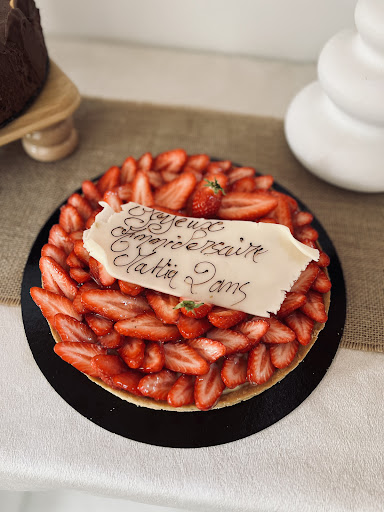 Joyeux
Anniversaire
Tahlia 2ans